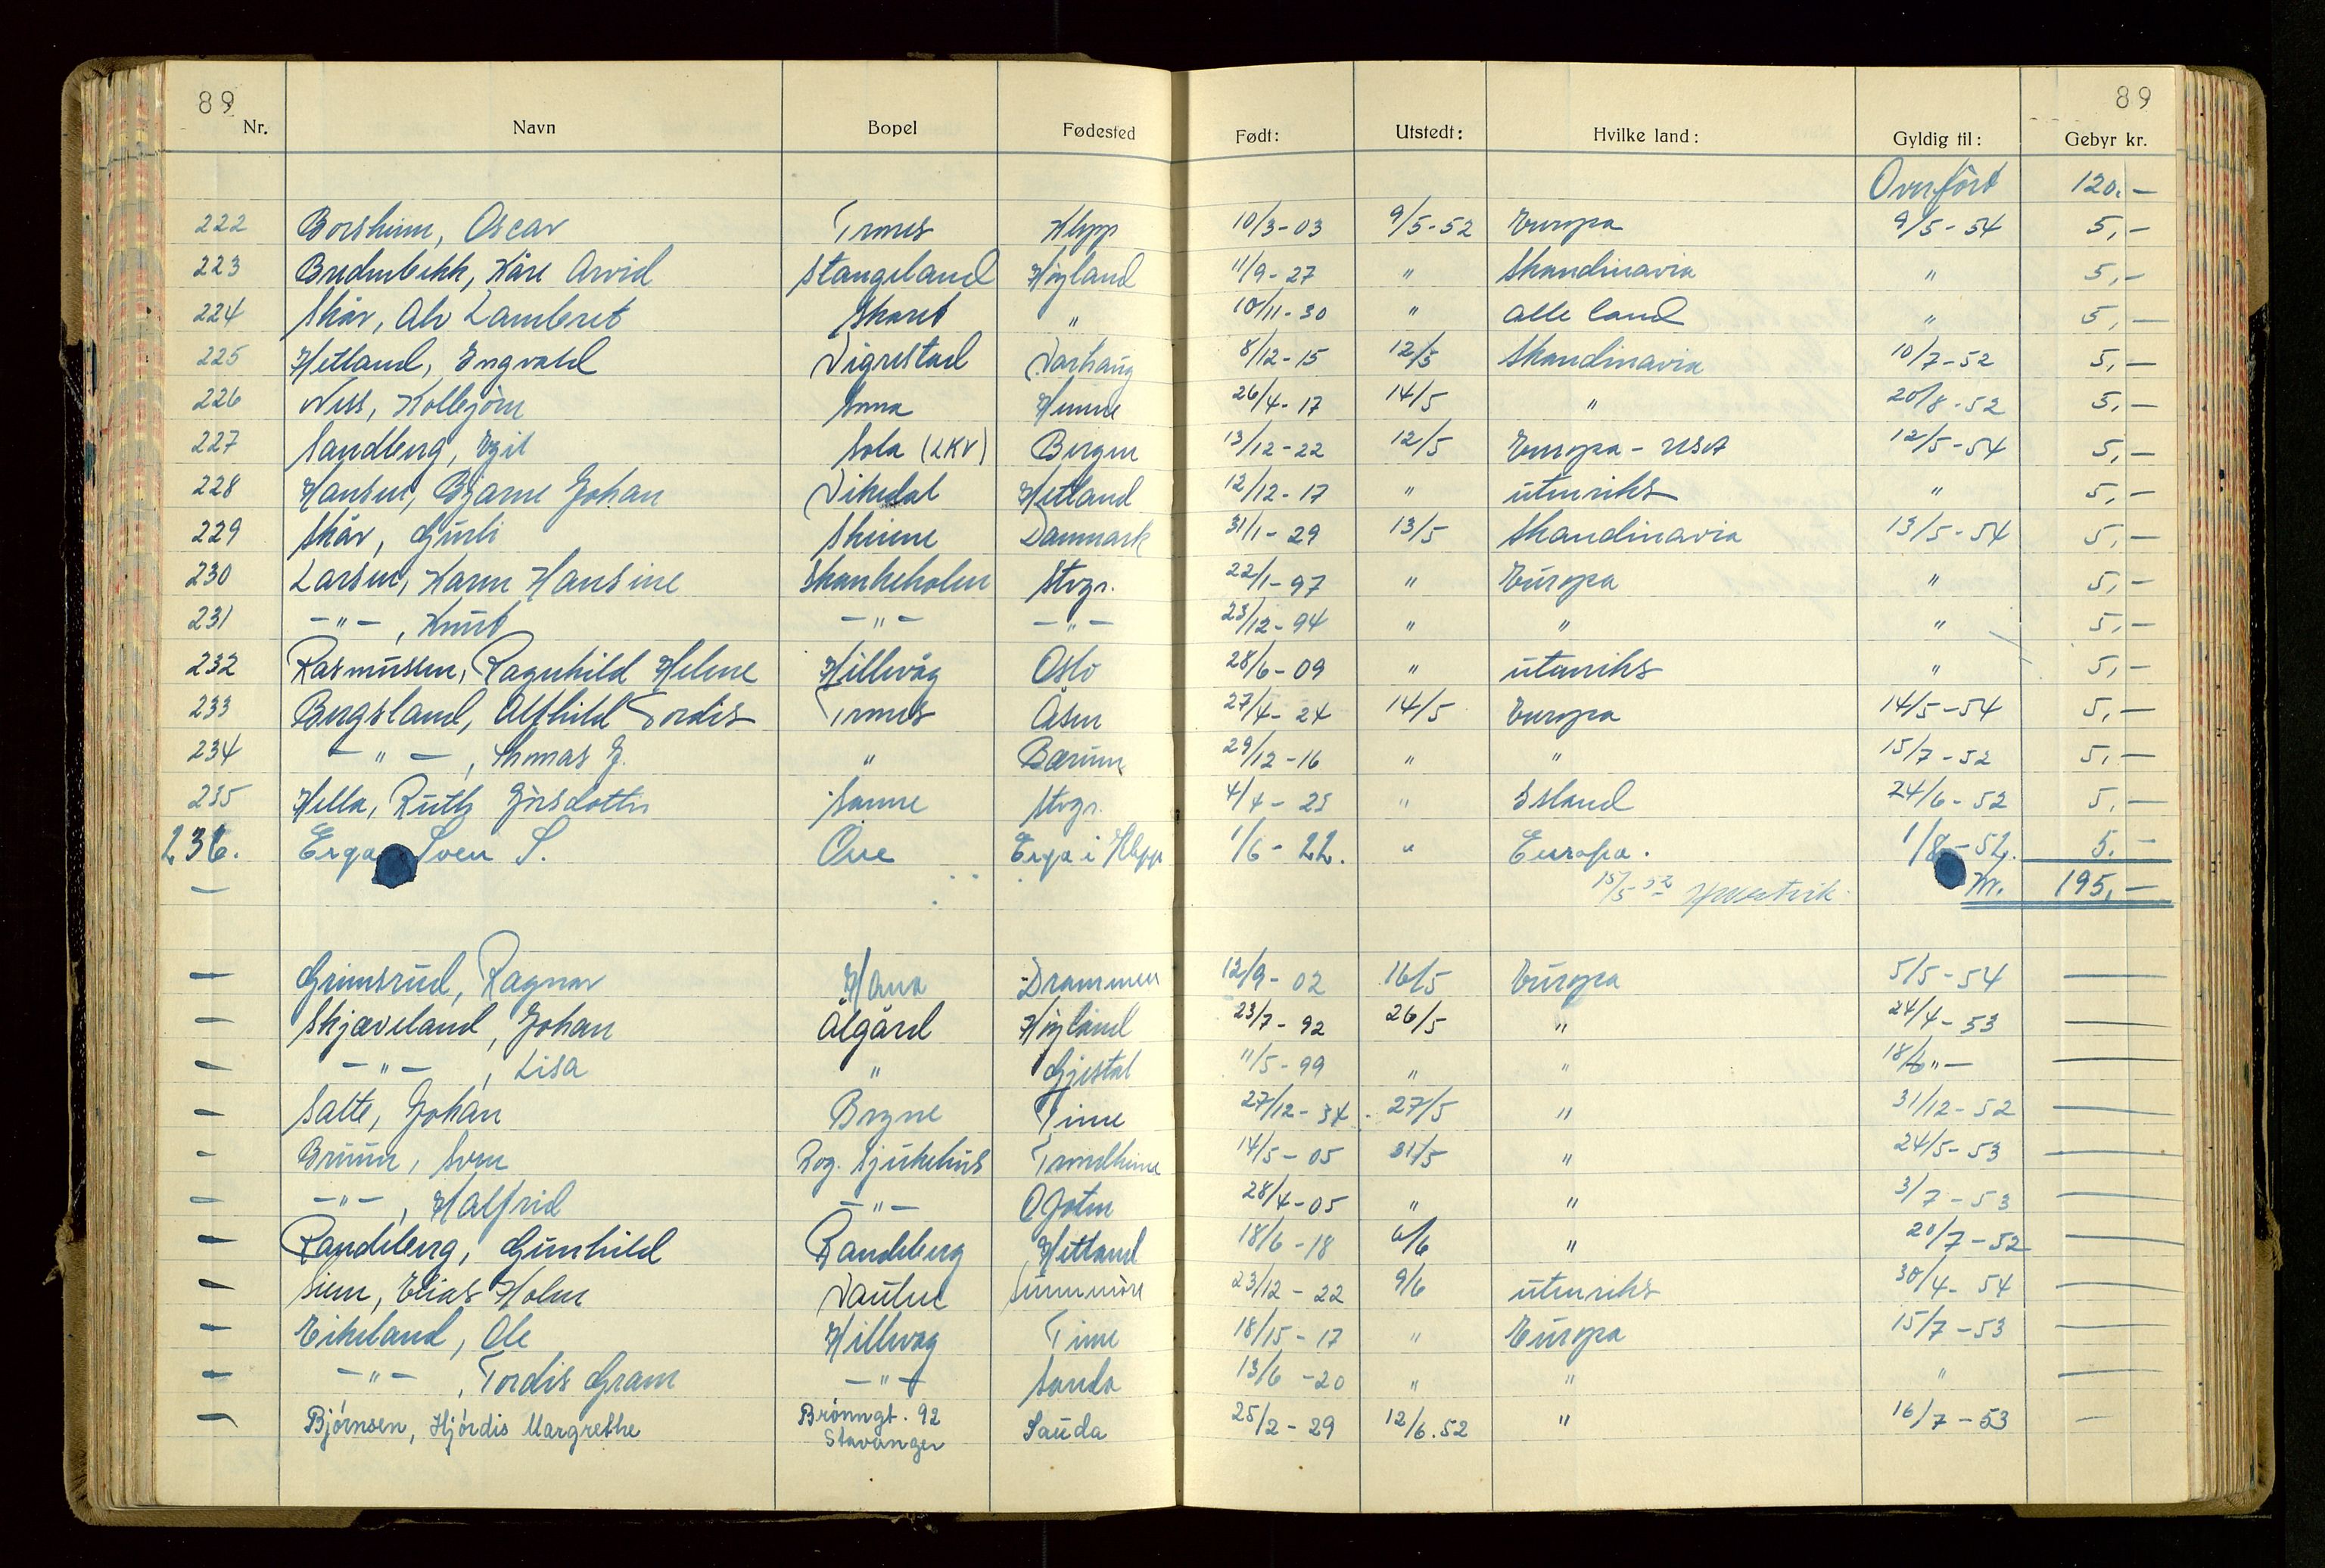 89 89
Nr. Navn Bopel Fødested Født: Utstedt: Hvilke land: Gyldig til: Gebyr kr.
Overført 120,-
222 Borsheim, Oscar Klepp 10/3-03 9/5-52 Europa 9/5-54 5,-
223 Bredenbekk, Kåre Arvid Stangeland Høyland 11/9-27 " Skandinavia " 5,-
224 Skår, Alv Lambret Skaret " 10/11-30 " alle land " 5,-
225 Hetland, Engvald Vigrestad Varhaug 8/12-15 12/5 Skandinavia 10/7-52 5,-
226 Ness, Kolbjörn 26/4-17 14/5 " 20/8-52 5,-
227 Sandberg, Egil Sola (LKV) Bergen 13/12-22 12/5 Europa - USA 12/5-54 5,-
228 Hansen, Bjarne Johan Vikedal Hetland 12/12-17 " utenriks " 5,-
229 Skår, Gurli Skeiene Danmark 31/1-29 13/5 Skandinavia 13/5-54 5,-
230 Larsen, Karen Hansine Skankeholen Stvgr. 22/1-97 " Europa " 5,-
231 -"-, Knut -"- -"- 23/12-94 " " " 5,-
232 Rasmussen, Ragnhild Helene Hillevåg Oslo 28/6-09 " utenriks " 5,-
233 Bergsland, Alfhild Tordis Åsen 27/4-24 14/5 Europa 14/5-54 5,-
234 -"-, Thomas G. " Bærum 29/12-16 " " 15/7-52 5,-
235 Hella, Ruth Stvgr. 4/4-25 " Island 24/6-52 5,-
236. Erga Sven S. Orre Erga i Klepp 1/6-22. " Europa. 1/8-52. 5.-
- 15/5 52 Kr. 195,-
- Grimsrud, Ragnar Hana Drammen 12/9-02 16/5 Europa 5/5-54 —
- Skjæveland, Johan Ålgård Høyland 23/7-92 26/5 " 24/4-53 —
- -"-, Lisa " Gjestal 11/5-99 " " 18/6"- —
- Salte, Johan Bryne Time 27/12-34 27/5 " 31/12-52 —
- Bruun, Sven Rog. Sjukehus Trondheim 14/5-05 31/5 " 24/5-53 —
- -"-, Halfrid -"- 28/4-05 " " 3/7-53 —
- Randeberg, Gunhild Randeberg Hetland 18/6-18 6/6 " 20/7-52 —
- Siem, Elias Holm Vaulen Sunnmöre 23/12-22 9/6 utenriks 30/4-54 —
- Eikeland, Ole Hillevåg Time 18/15-17 " Europa 15/7-53 —
- -"-, Tordis Gram -"- Sauda 13/6-20 " " " —
- Bjørnsen, Hjørdis Margrethe Brønngt. 92 Sauda 25/2-29 12/6.52 " 16/7-53 -
Stavanger